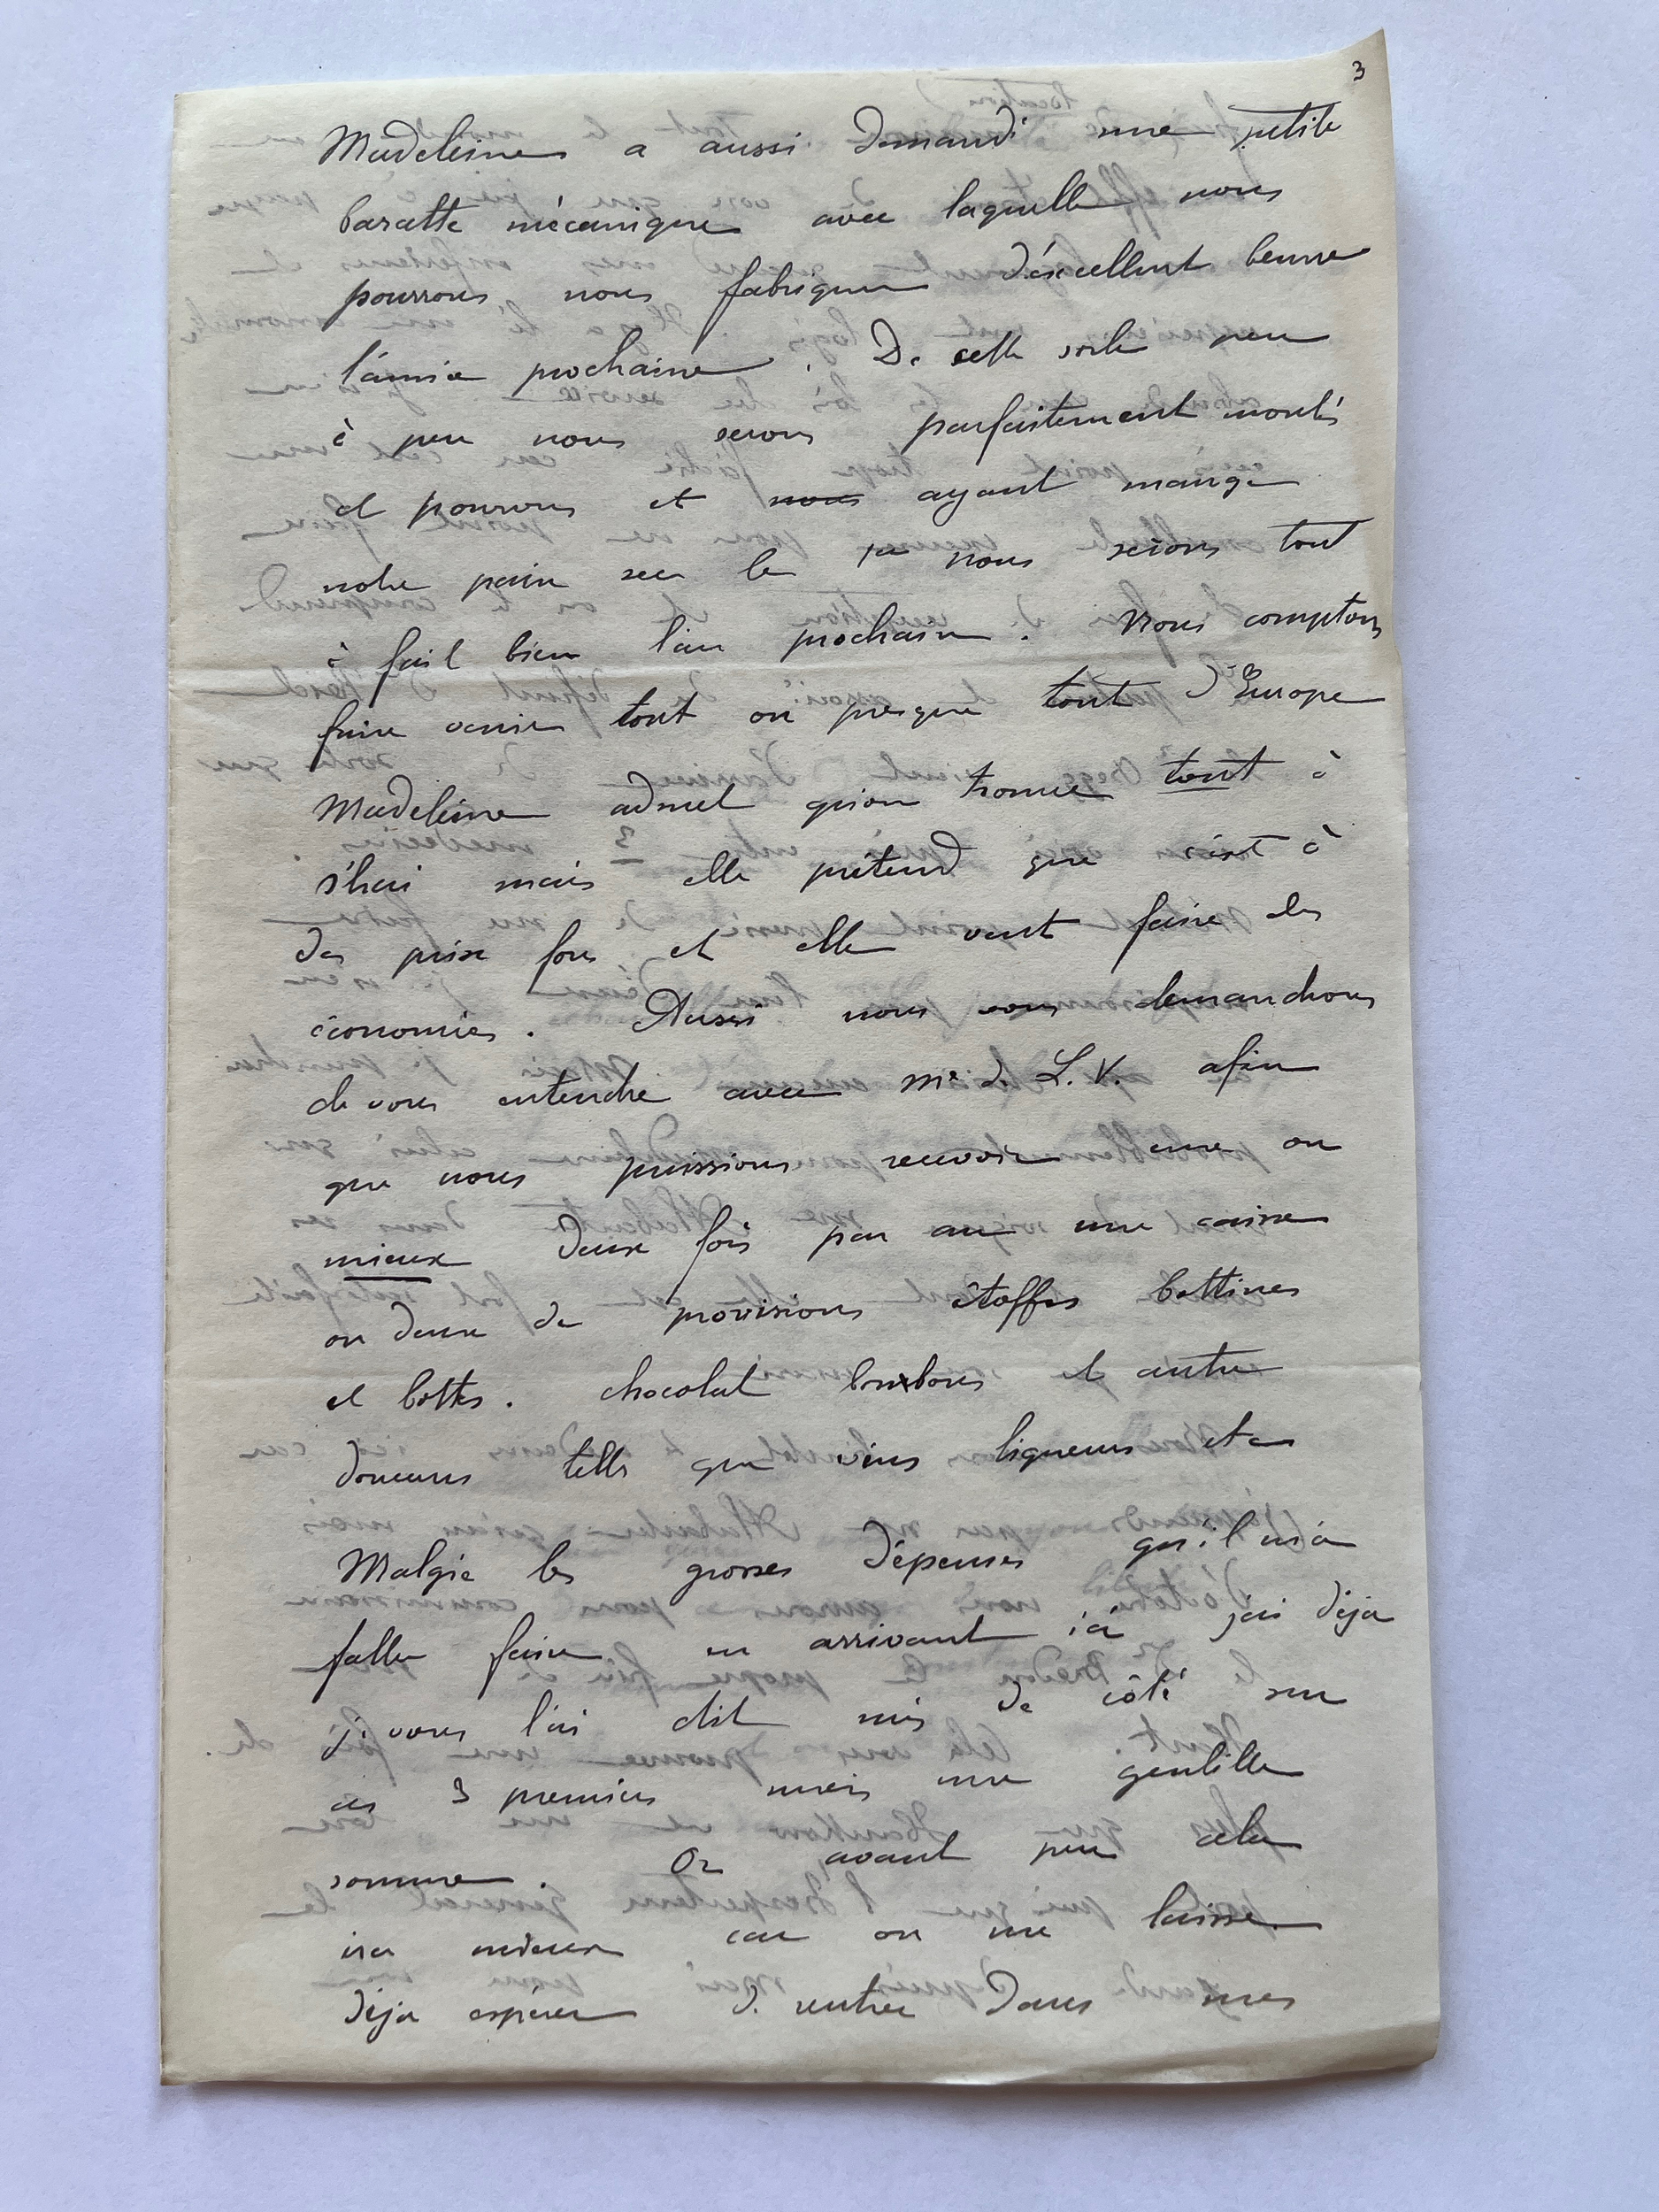 3
Madeleine a aussi demandé une petite
baratte mécanique avec laquelle nous
pourrons nous fabriquer d'excellent beurre
l'année prochaine. De cette sorte peu
à peu nous serons parfaitement montés
et pourvus et nous ayant mangé
notre pain sec le 1er nous serons tout
à fait bien l'an prochain. Nous comptons
faire venir tout ou presque tout d'Europe
Madeleine admet qu'on trouve tout à
S'hai mais elle prétend que c'est à
des prix fous et elle veut faire des
économies. Aussi nous vous demandrons
de vous entendre avec Me de L. V. afin
que nous puissions recevoir une ou
mieux deux fois par an une caisse
ou deux de provisions étoffes bottines
et bottes. chocolat bonbons et autre
douceurs telles que vins liqueurs etc
Malgré les grosses dépenses qu'il m'a
fallu faire en arrivant ici j'ai déja
je vous l'ai dit mis de côté sur
ces 3 premiers mois une gentille
somme. Or avant peu cela
ira mieux car on me laisse
déja espérer de rentrer dans mes